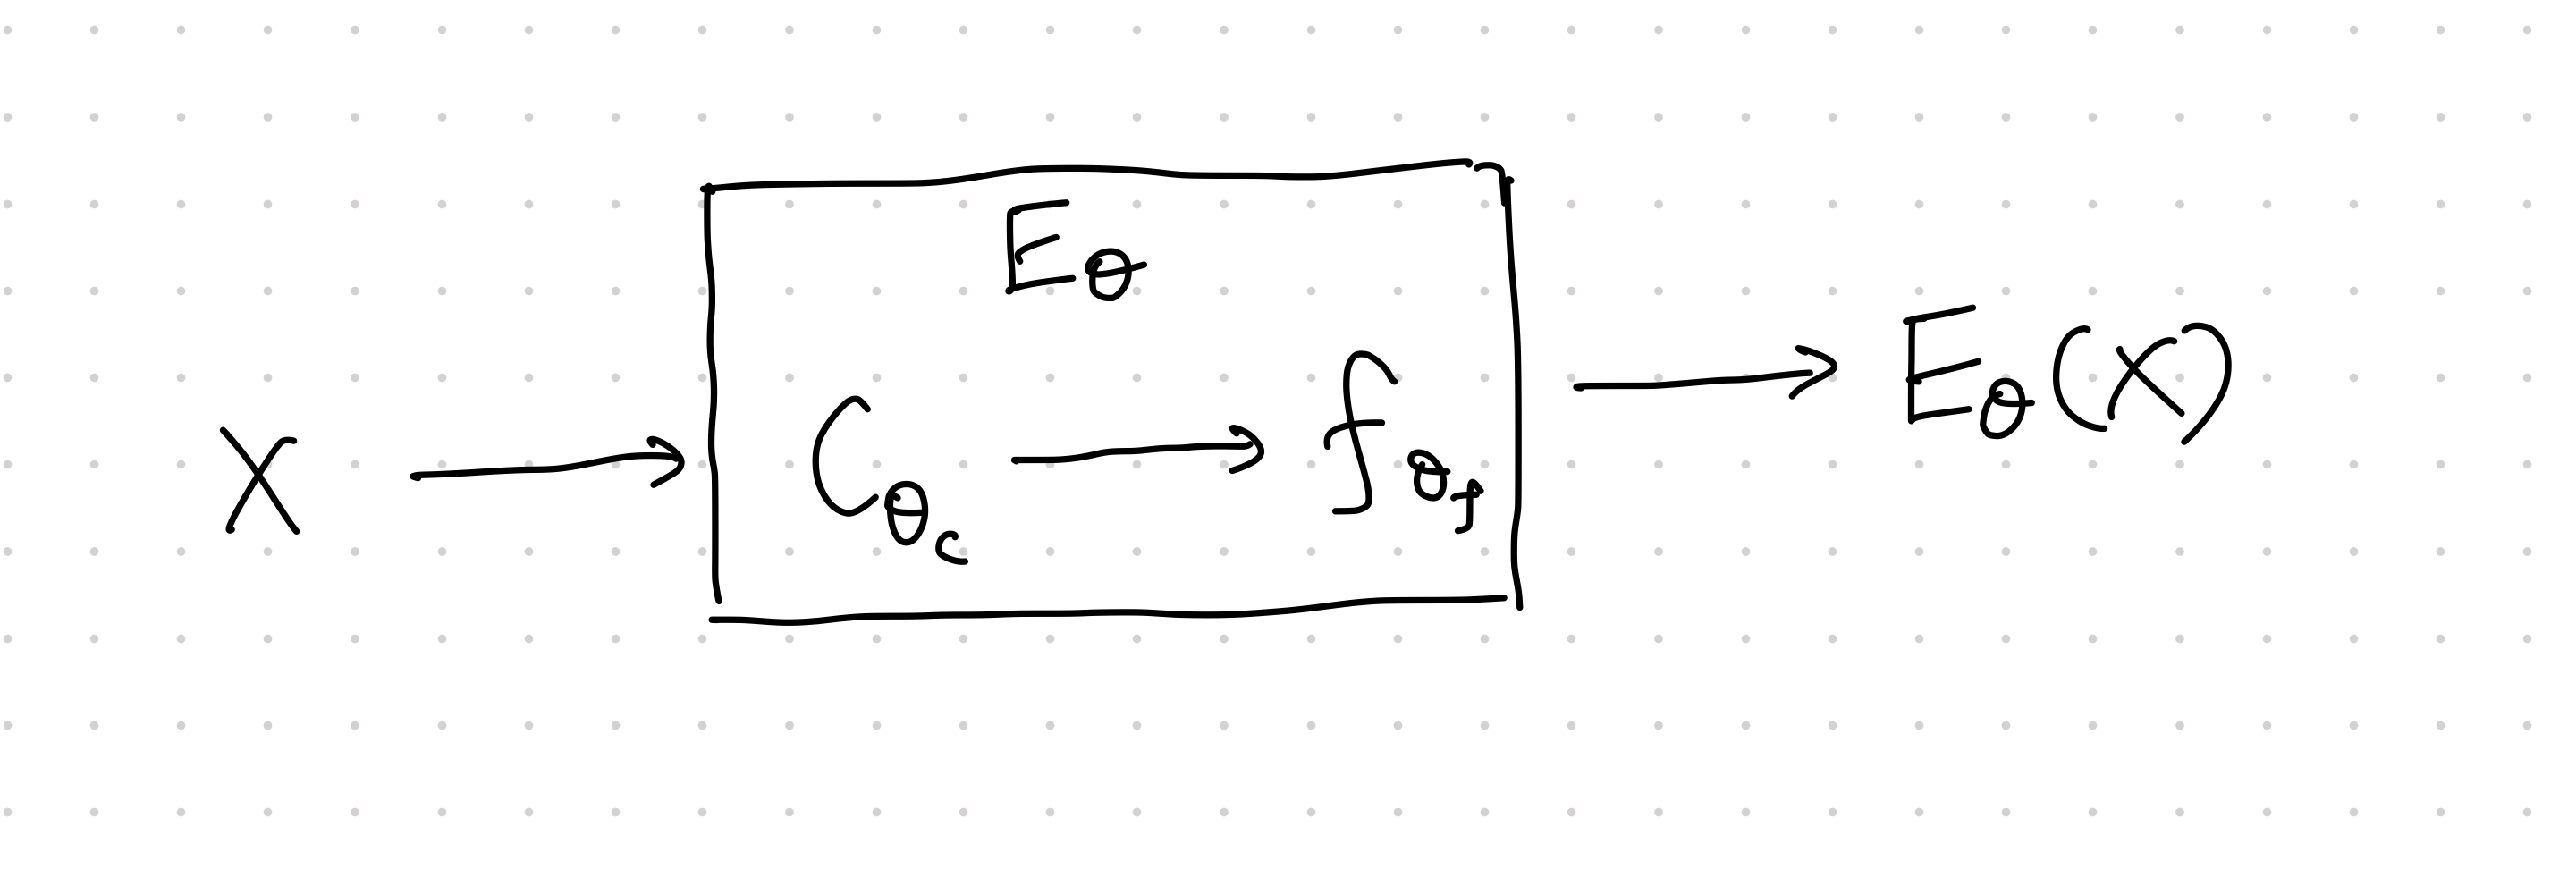 E_θ
x → C_{θ_c} → f_{θ_f} → E_θ(x)